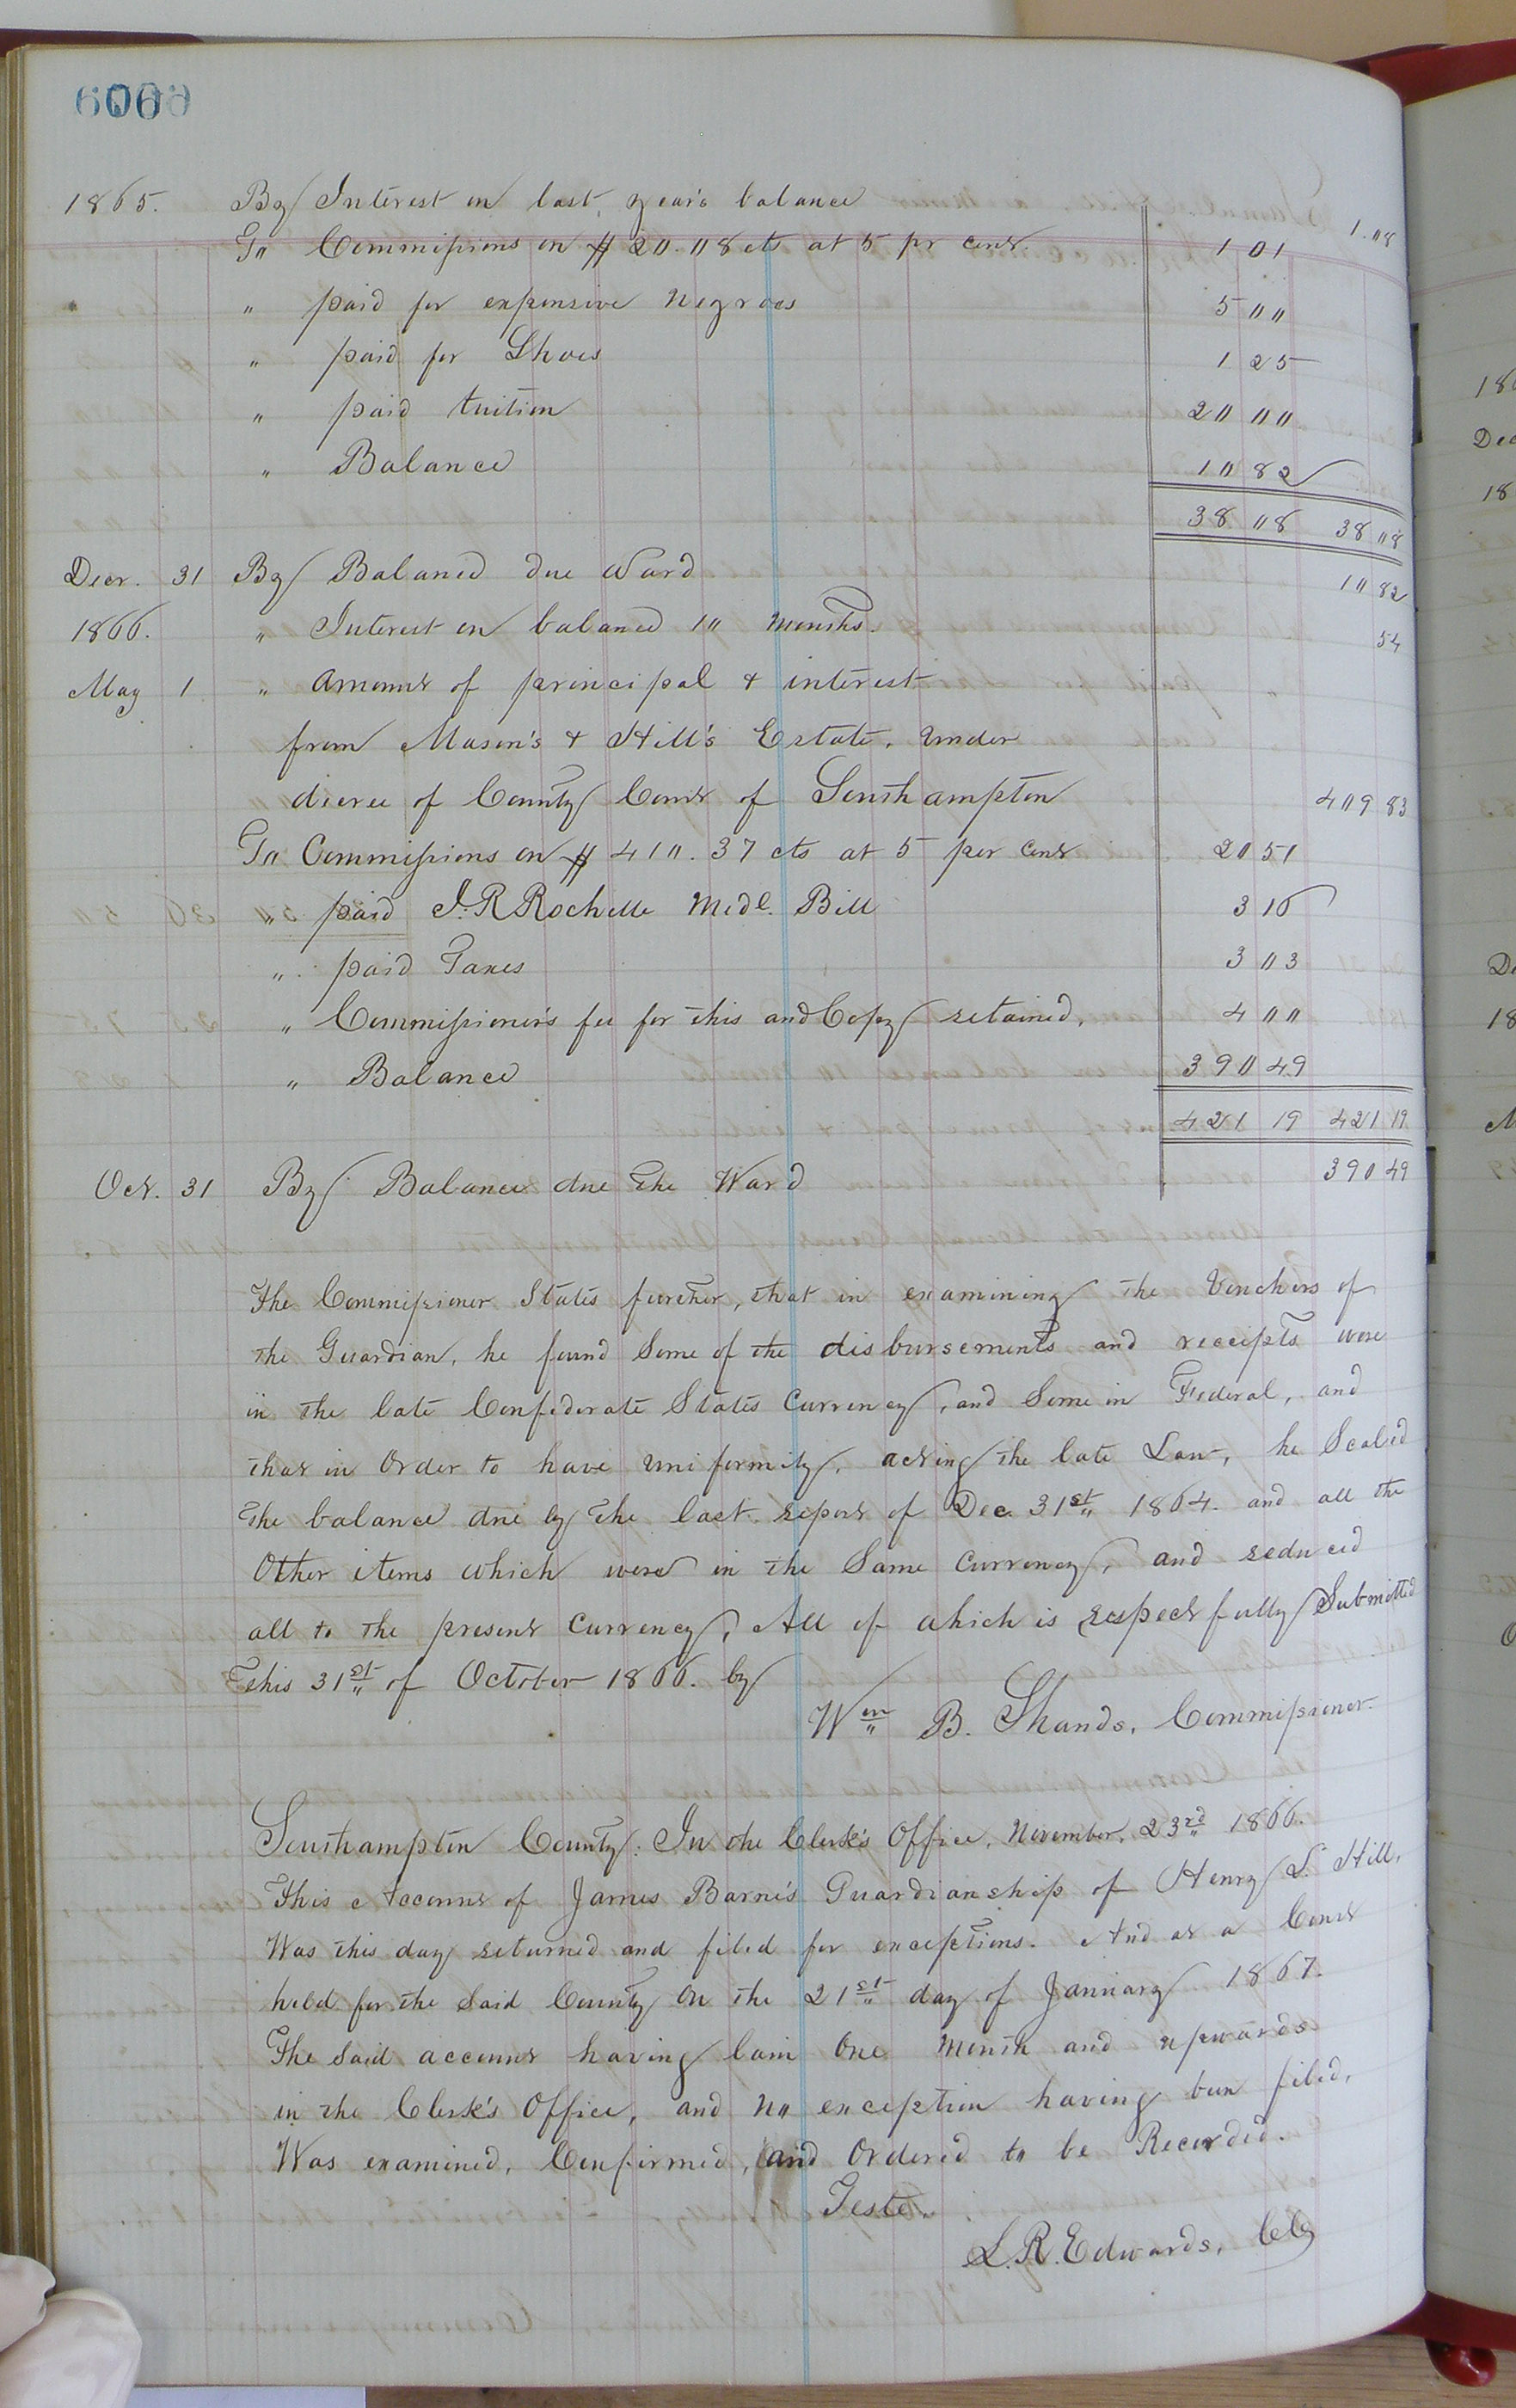 600
1865. By Interest on last year's balance 1.08
To Commissions on $20.08 cts at 5 pr cent. 1 01
" paid for expensive negroes 5 00
" paid for Shoes 1 25
" paid tuition 20 00
" Balance 10 82
38 08 38 08
Decr. 31 By Balance due Ward 10 82
1866. " Interest on balance 10 months. 54
May 1 " Amount of principal & interest
from Mason's & Hill's Estate, under
decree of County Court of Southampton 409 83
To Commissions on $410.37 cts at 5 per cent 20 51
" paid J. R Rochelle Medl. Bill 3 16
" paid Taxes 3 03
" Commissioner's fee for this and Copy retained, 4 00
" Balance 390 49
421 19 421 19
Oct. 31 By Balance due the Ward 390 49
The Commissioner States further, that in examining the Vouchers of
the Guardian, he found Some of the disbursements and receipts were
in the late Confederate States Currency, and Some in Federal, and
that in Order to have uniformity, acting the late Law, he Scaled
the balance due by the last report of Dec 31st 1864. and all the
Other items which were in the Same Currency, and reduced
all to the present Currency, All of which is respectfully Submitted
This 31st of October 1866. by
Wm B. Shands, Commissioner.
Southampton County: In the Clerk's Office, November, 23rd 1866.
This Account of James Barne's Guardianship of Henry L. Hill,
Was this day returned and filed for exceptions. And at a Court
held for the Said County On the 21st day of January 1867.
The Said account having lain One Month and upwards
in the Clerk's Office, and no exception having been filed,
Was examined, Confirmed, and Ordered to be Recorded.
Teste.
L. R. Edwards, Clk